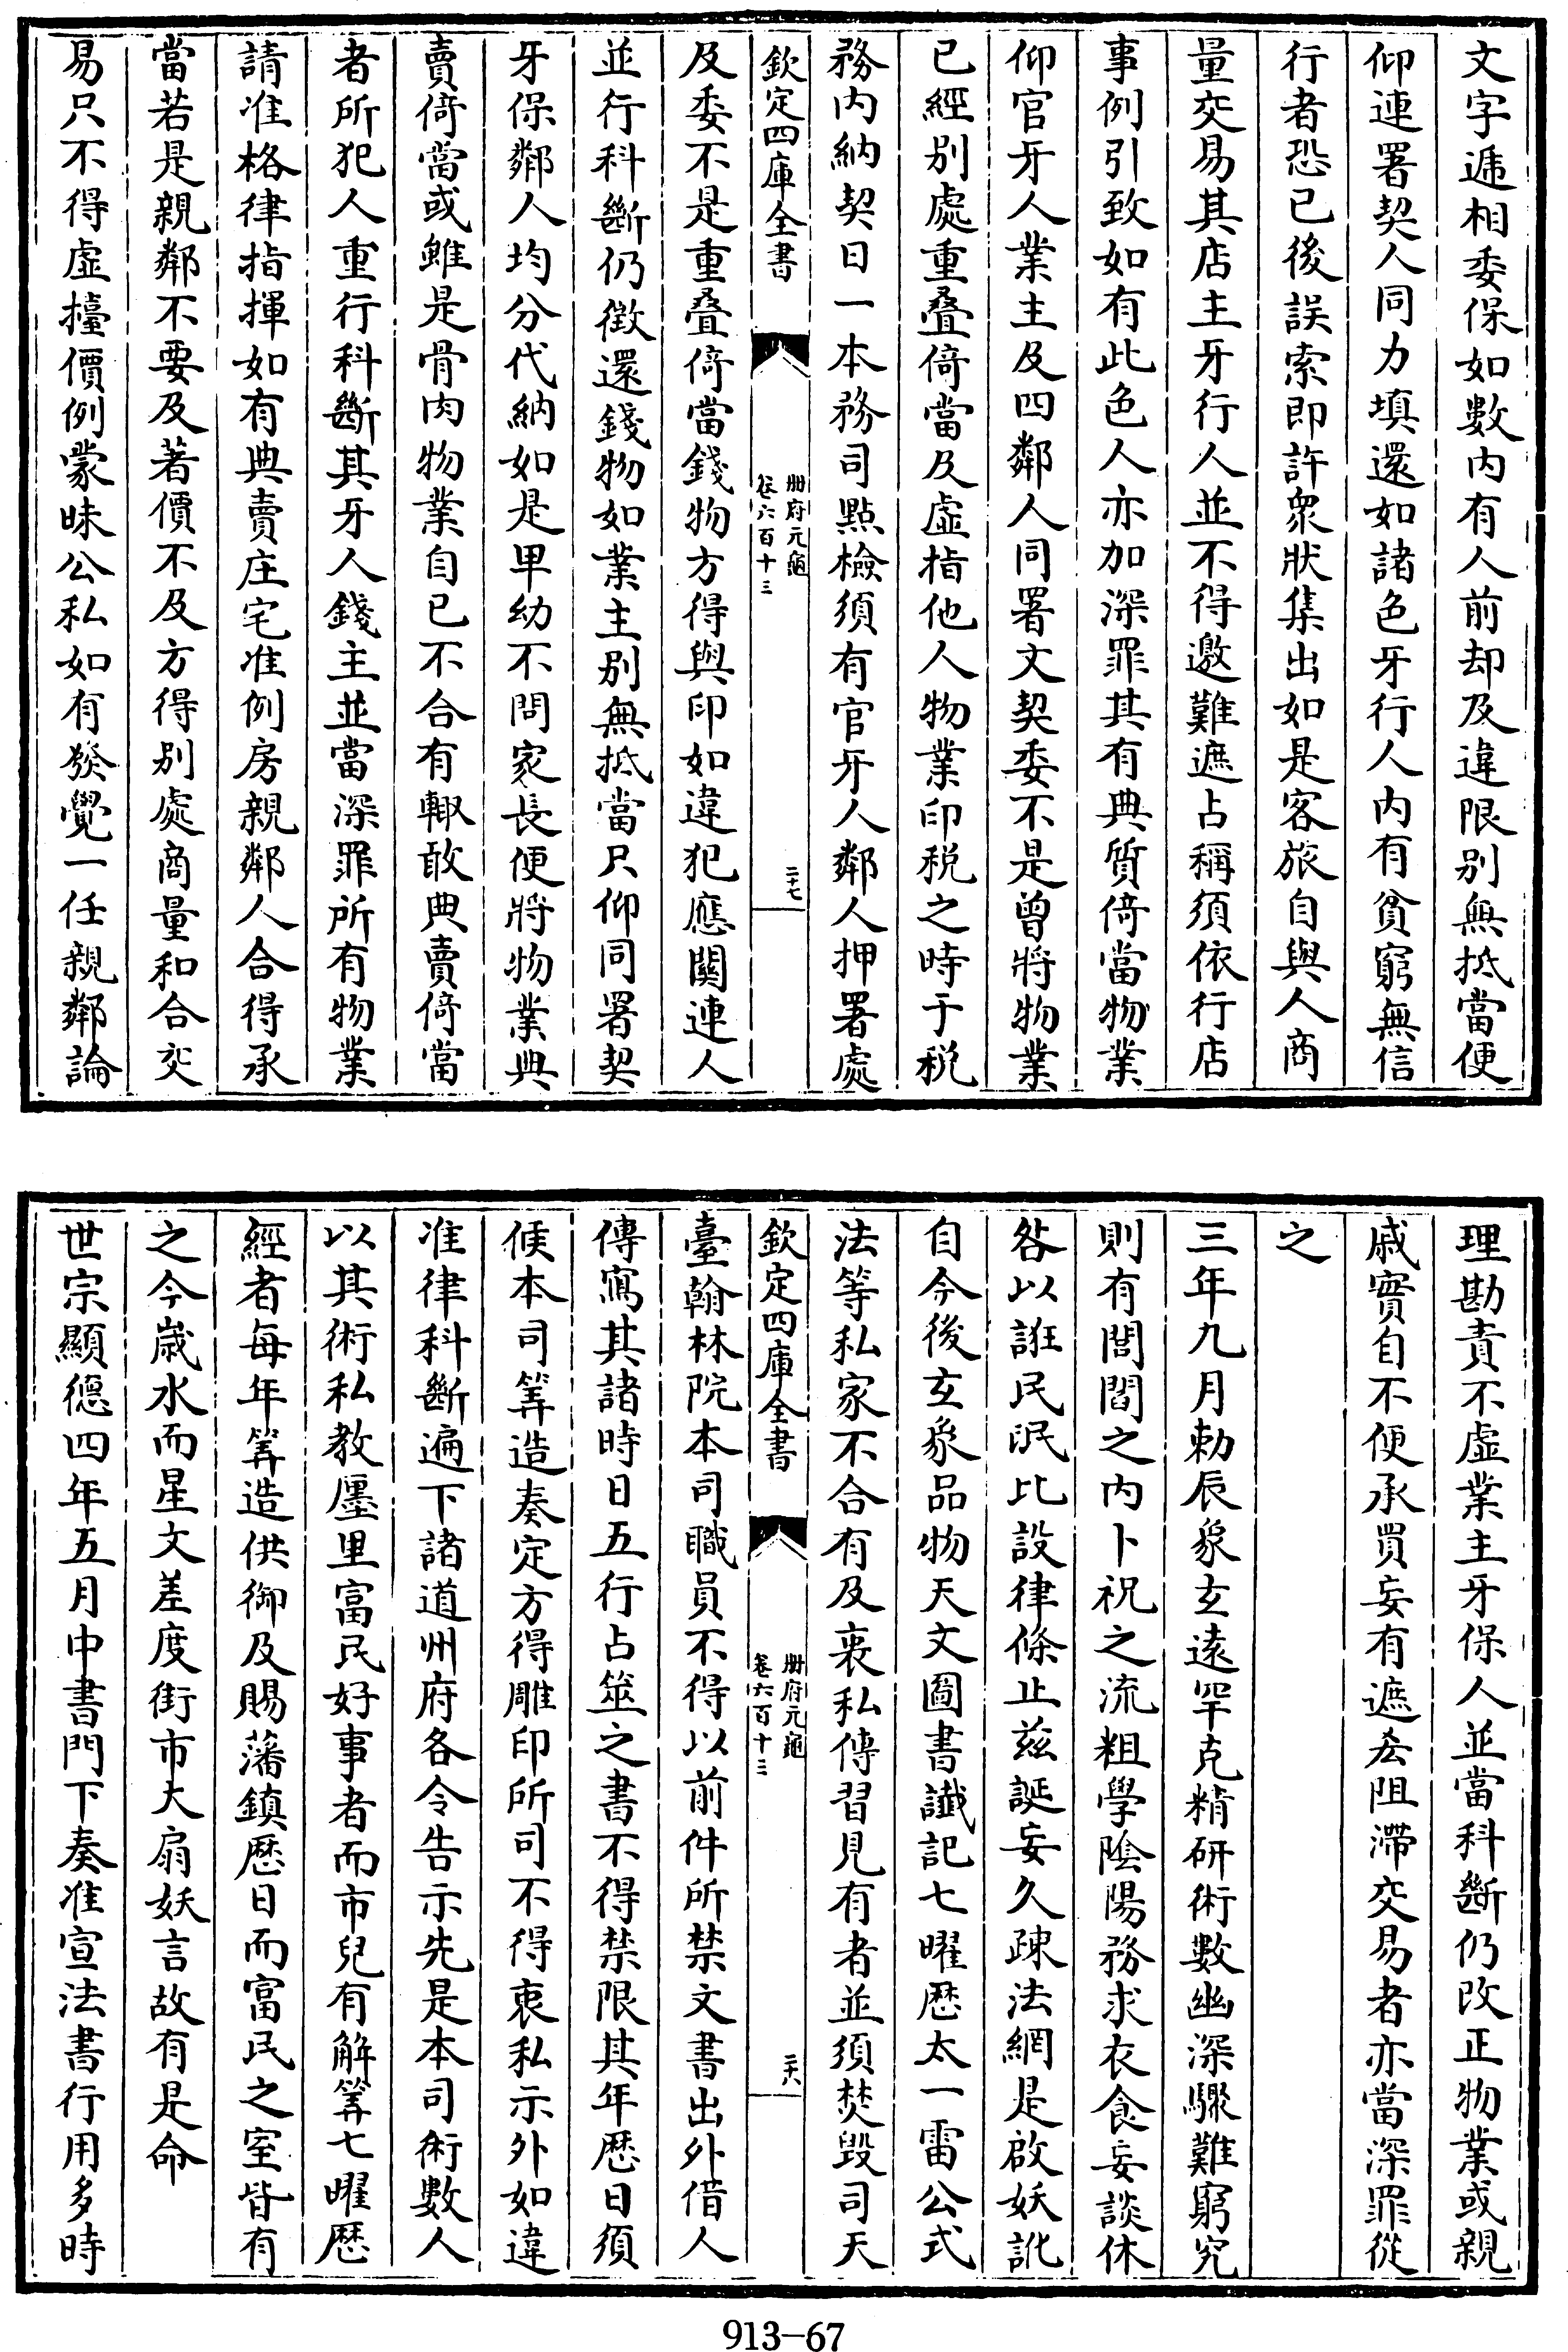 文字遞相委保如數内有人前却及違限别無抵當便
仰連署契人同力填還如諸色牙行人内有貧窮無信
行者恐已後誤索即許衆狀集出如是客旅自與人商
量交易其店主牙行人並不得邀難遮占稱須依行店
事例引致如有此色人亦加深罪其有典質倚當物業
仰官牙人業主及四鄰人同署文契委不是曾將物業
已經别處重叠倚當及虛指他人物業印税之時于税
務内納契日一本務司點檢須有官牙人鄰人押署處
欽定四庫全書
册府元龜
卷六百十三
二十七
及委不是重叠倚當錢物方得與印如違犯應關連人
並行科斷仍徴還錢物如業主别無抵當只仰同署契
牙保鄰人均分代納如是卑幼不問家長便將物業典
賣倚當或雖是骨肉物業自已不合有輙敢典賣倚當
者所犯人重行科斷其牙人錢主並當深罪所有物業
請准格律指揮如有典賣庄宅准例房親鄰人合得承
當若是親鄰不要及著價不及方得别處商量和合交
易只不得虛擡價例蒙昧公私如有發覺一任親鄰論
理勘責不虛業主牙保人並當科斷仍改正物業或親
戚實自不便承買妄有遮吝阻滯交易者亦當深罪從
之
三年九月勅辰象玄逺罕克精研術數幽深驟難窮究
則有閭閻之内卜祝之流粗學陰陽務求衣食妄談休
咎以誑民氓比設律條止兹誕妄久疎法網是啟妖訛
自今後玄象品物天文圖書讖記七曜歴太一雷公式
法等私家不合有及衷私傳習見有者並須焚毀司天
欽定四庫全書
册府元龜
卷六百十三
二十八
臺翰林院本司職員不得以前件所禁文書出外借人
傳寫其諸時日五行占筮之書不得禁限其年歴日須
候本司筭造奏定方得雕印所司不得衷私示外如違
准律科斷遍下諸道州府各令告示先是本司術數人
以其術私教㕓里富民好事者而市兒有解筭七曜歴
經者每年筭造供御及賜藩鎮歴日而富民之室皆有
之今嵗水而星文差度街市大扇妖言故有是命
世宗顯德四年五月中書門下奏准宣法書行用多時
913-67